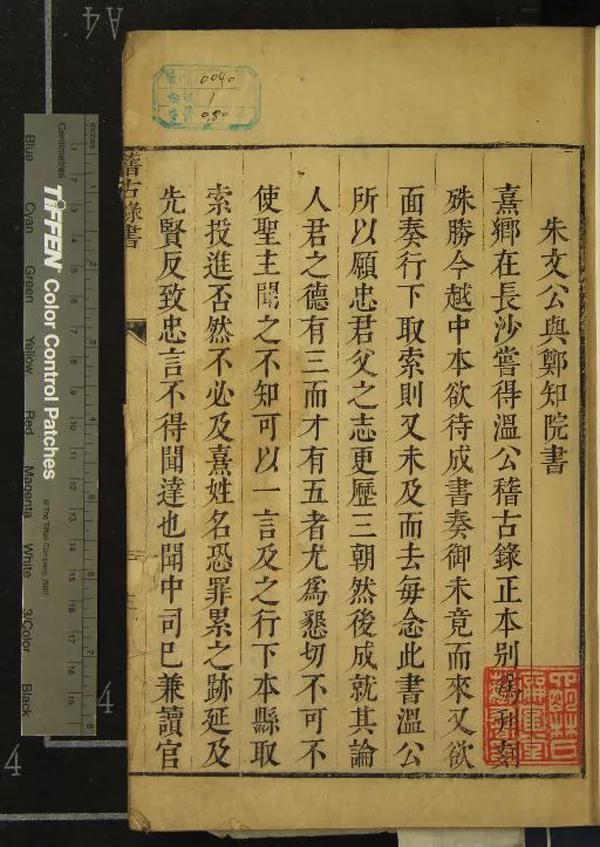 朱文公與鄭知院書
熹鄉在長沙嘗得溫公稽古錄正本別爲刊刻
殊勝今越中本欲待成書奏御未竟而來又欲
面奏行下取索則又未及而去每念此書溫公
所以願忠君父之志更歷三朝然後成就其論
人君之德有三而才有五者尤爲懇切不可不
使聖主聞之不知可以一言及之行下本縣取
索投進否然不必及熹姓名恐罪累之跡延及
先賢反致忠言不得聞達也聞中司已兼讀官
稽古錄書
0040
1
0.80
A4
Inches
Centimetres
TIFFEN Color Control Patches
© The Tiffen Company, 2007
Blue
Cyan
Green
Yellow
Red
Magenta
White
3/Color
Black
4
4